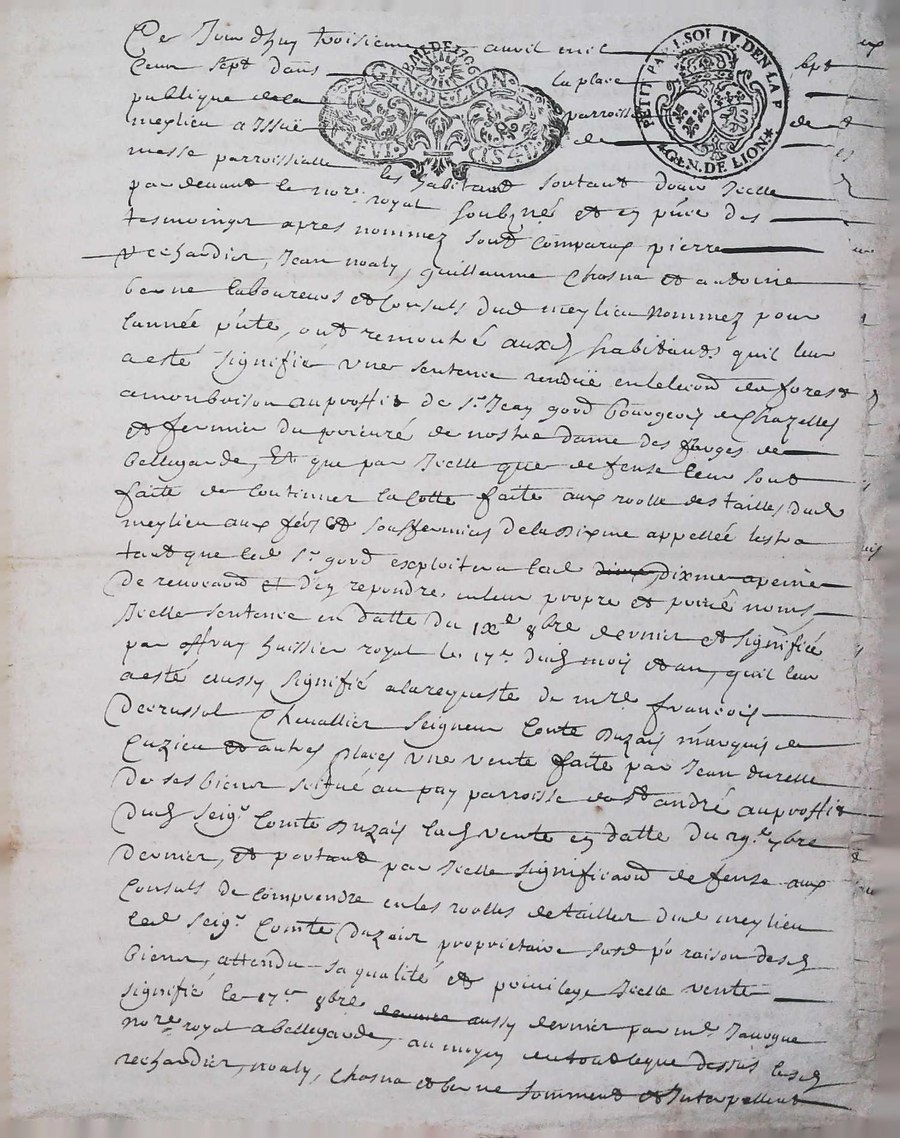 Ce Jourdhuy troisieme avril mil sept
Cent sept dans la place
publique de la parroisse de
meylieu a Issuë de
messe parroissialle les habitans sortant d'ouir Icelle
par devant le no.re royal soubz.né et en p.nce des
tesmoingz apres nommez sont comparus pierre
rechandier, Jean noaly, guillaume Chosna et antoine
berne laboureurs et Consuls dud meylieu nommez pour
lannée p.nte, ont remontré auxd habitants quil leur
a esté signifié une sentence renduë en lelection de forest
a monbrison au proffit de s.r Jean gord bourgeois de Chazelles
et fermier du prieuré de nostre dame des forges de
bellegarde, Et que par Icelle que defense leur sont
faite de Continuer la Cotte faite aux roolle des tailles dud
meylieu aux et sousfermiers de la Dixme appellée
tant que led s.r gord exploitera lad dixme a peine
De et d'en repondre en leur propre et privé noms
Icelle sentence en datte du IX.e 8bre dernier et signifiée
par offray huissier royal le 17.e dud mois et an, quil leur
a esté aussy signifié a la requeste de m.re francois
De crussol Chevallier Seigneur Comte Duzais marquis de
Cuzieu et autres places une vente faite par Jean durelle
De ses biens scitué au pay parroisse de s.t andré au proffit
Dud seig.r Comte Duzais lad vente en datte du 29.e 7bre
dernier, et portant par Icelle signification defense aux
Consuls de comprendre en les roolles de tailles dud meylieu
led seig.r Comte Duzais proprietaire susd p.r raison desd
biens, attendu sa qualité et privilege Icelle vente
signifié le 17.e 8bre aussy dernier par m.e Janogue
no.re royal a bellegarde, au moyen de tout leque dessus lesd
rechandier, noaly, Chosna et berne somment et Interpellent
GEN. DE LION
PETIT PAP. 1. SOL IV DEN LA P
GEN. DE LION